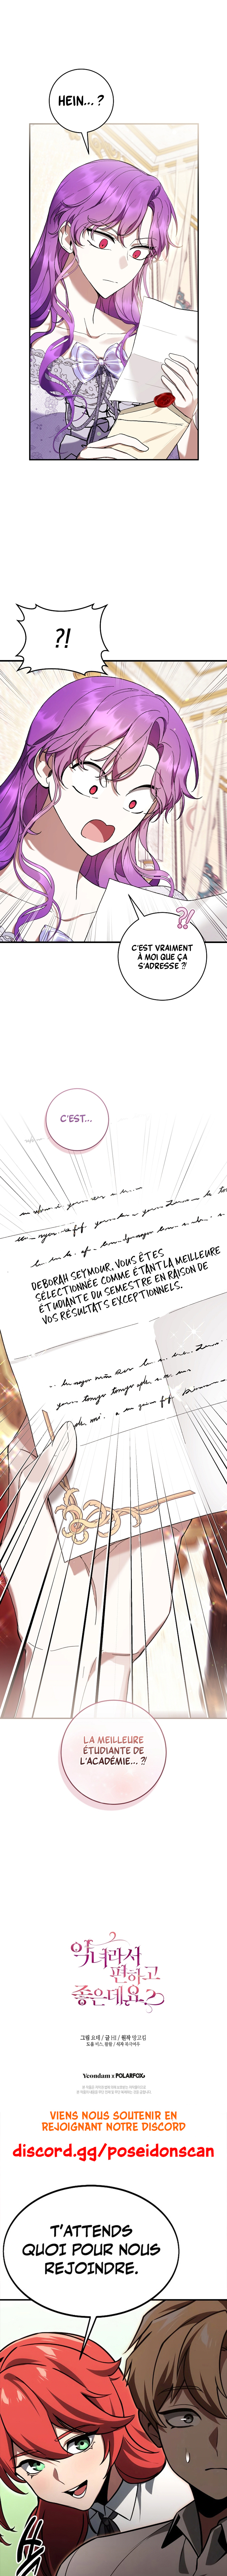 HEIN... ?
?!
?!
C'EST VRAIMENT
À MOI QUE ÇA
S'ADRESSE ?!
C'EST...
DEBORAH SEYMOUR, VOUS ÊTES
SÉLECTIONNÉE COMME ÉTANT LA MEILLEURE
ÉTUDIANTE DU SEMESTRE EN RAISON DE
VOS RÉSULTATS EXCEPTIONNELS.
LA MEILLEURE
ÉTUDIANTE DE
L'ACADÉMIE... ?!
악녀라서
편하고
좋은데요?
그림 요태 / 글 / 원작 망고킴
Yeondam x POLARFOX
VIENS NOUS SOUTENIR EN
REJOIGNANT NOTRE DISCORD
discord.gg/poseidonscan
T'ATTENDS
QUOI POUR NOUS
REJOINDRE.